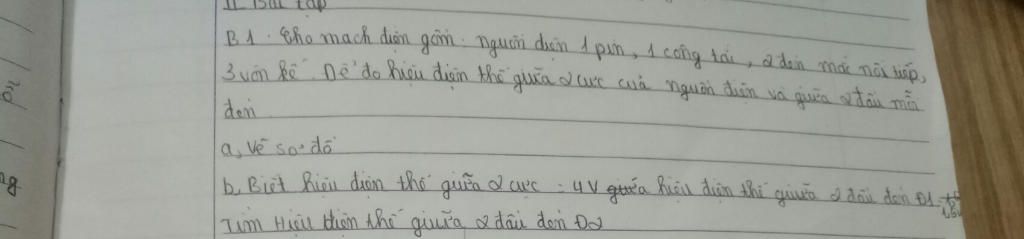 II Bài tập
B1. Cho mạch điện gồm: nguồn điện 1 pin, 1 công tắc, 2 đèn mắc nối tiếp,
3 vôn kế. Để đo hiệu điện thế giữa 2 cực của nguồn điện và giữa 2 đầu mỗi
đèn
a, Vẽ sơ đồ
b, Biết hiệu điện thế giữa 2 cực = 4V giữa hiệu điện thế giữa 2 đầu đèn Đ1
Tìm Hiệu điện thế giữa 2 đầu đèn Đ2